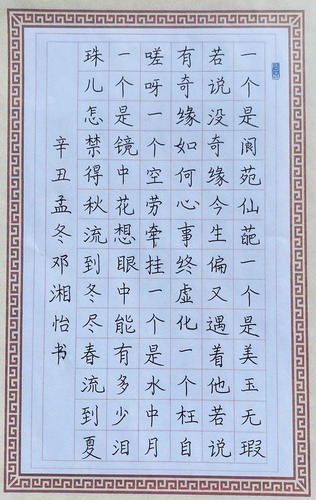 一个是阆苑仙葩一个是美玉无瑕
若说没奇缘今生偏又遇着他若说
有奇缘如何心事终虚化一个枉自
嗟呀一个空劳牵挂一个是水中月
一个是镜中花想眼中能有多少泪
珠儿怎禁得秋流到冬尽春流到夏
辛丑孟冬邓湘怡书